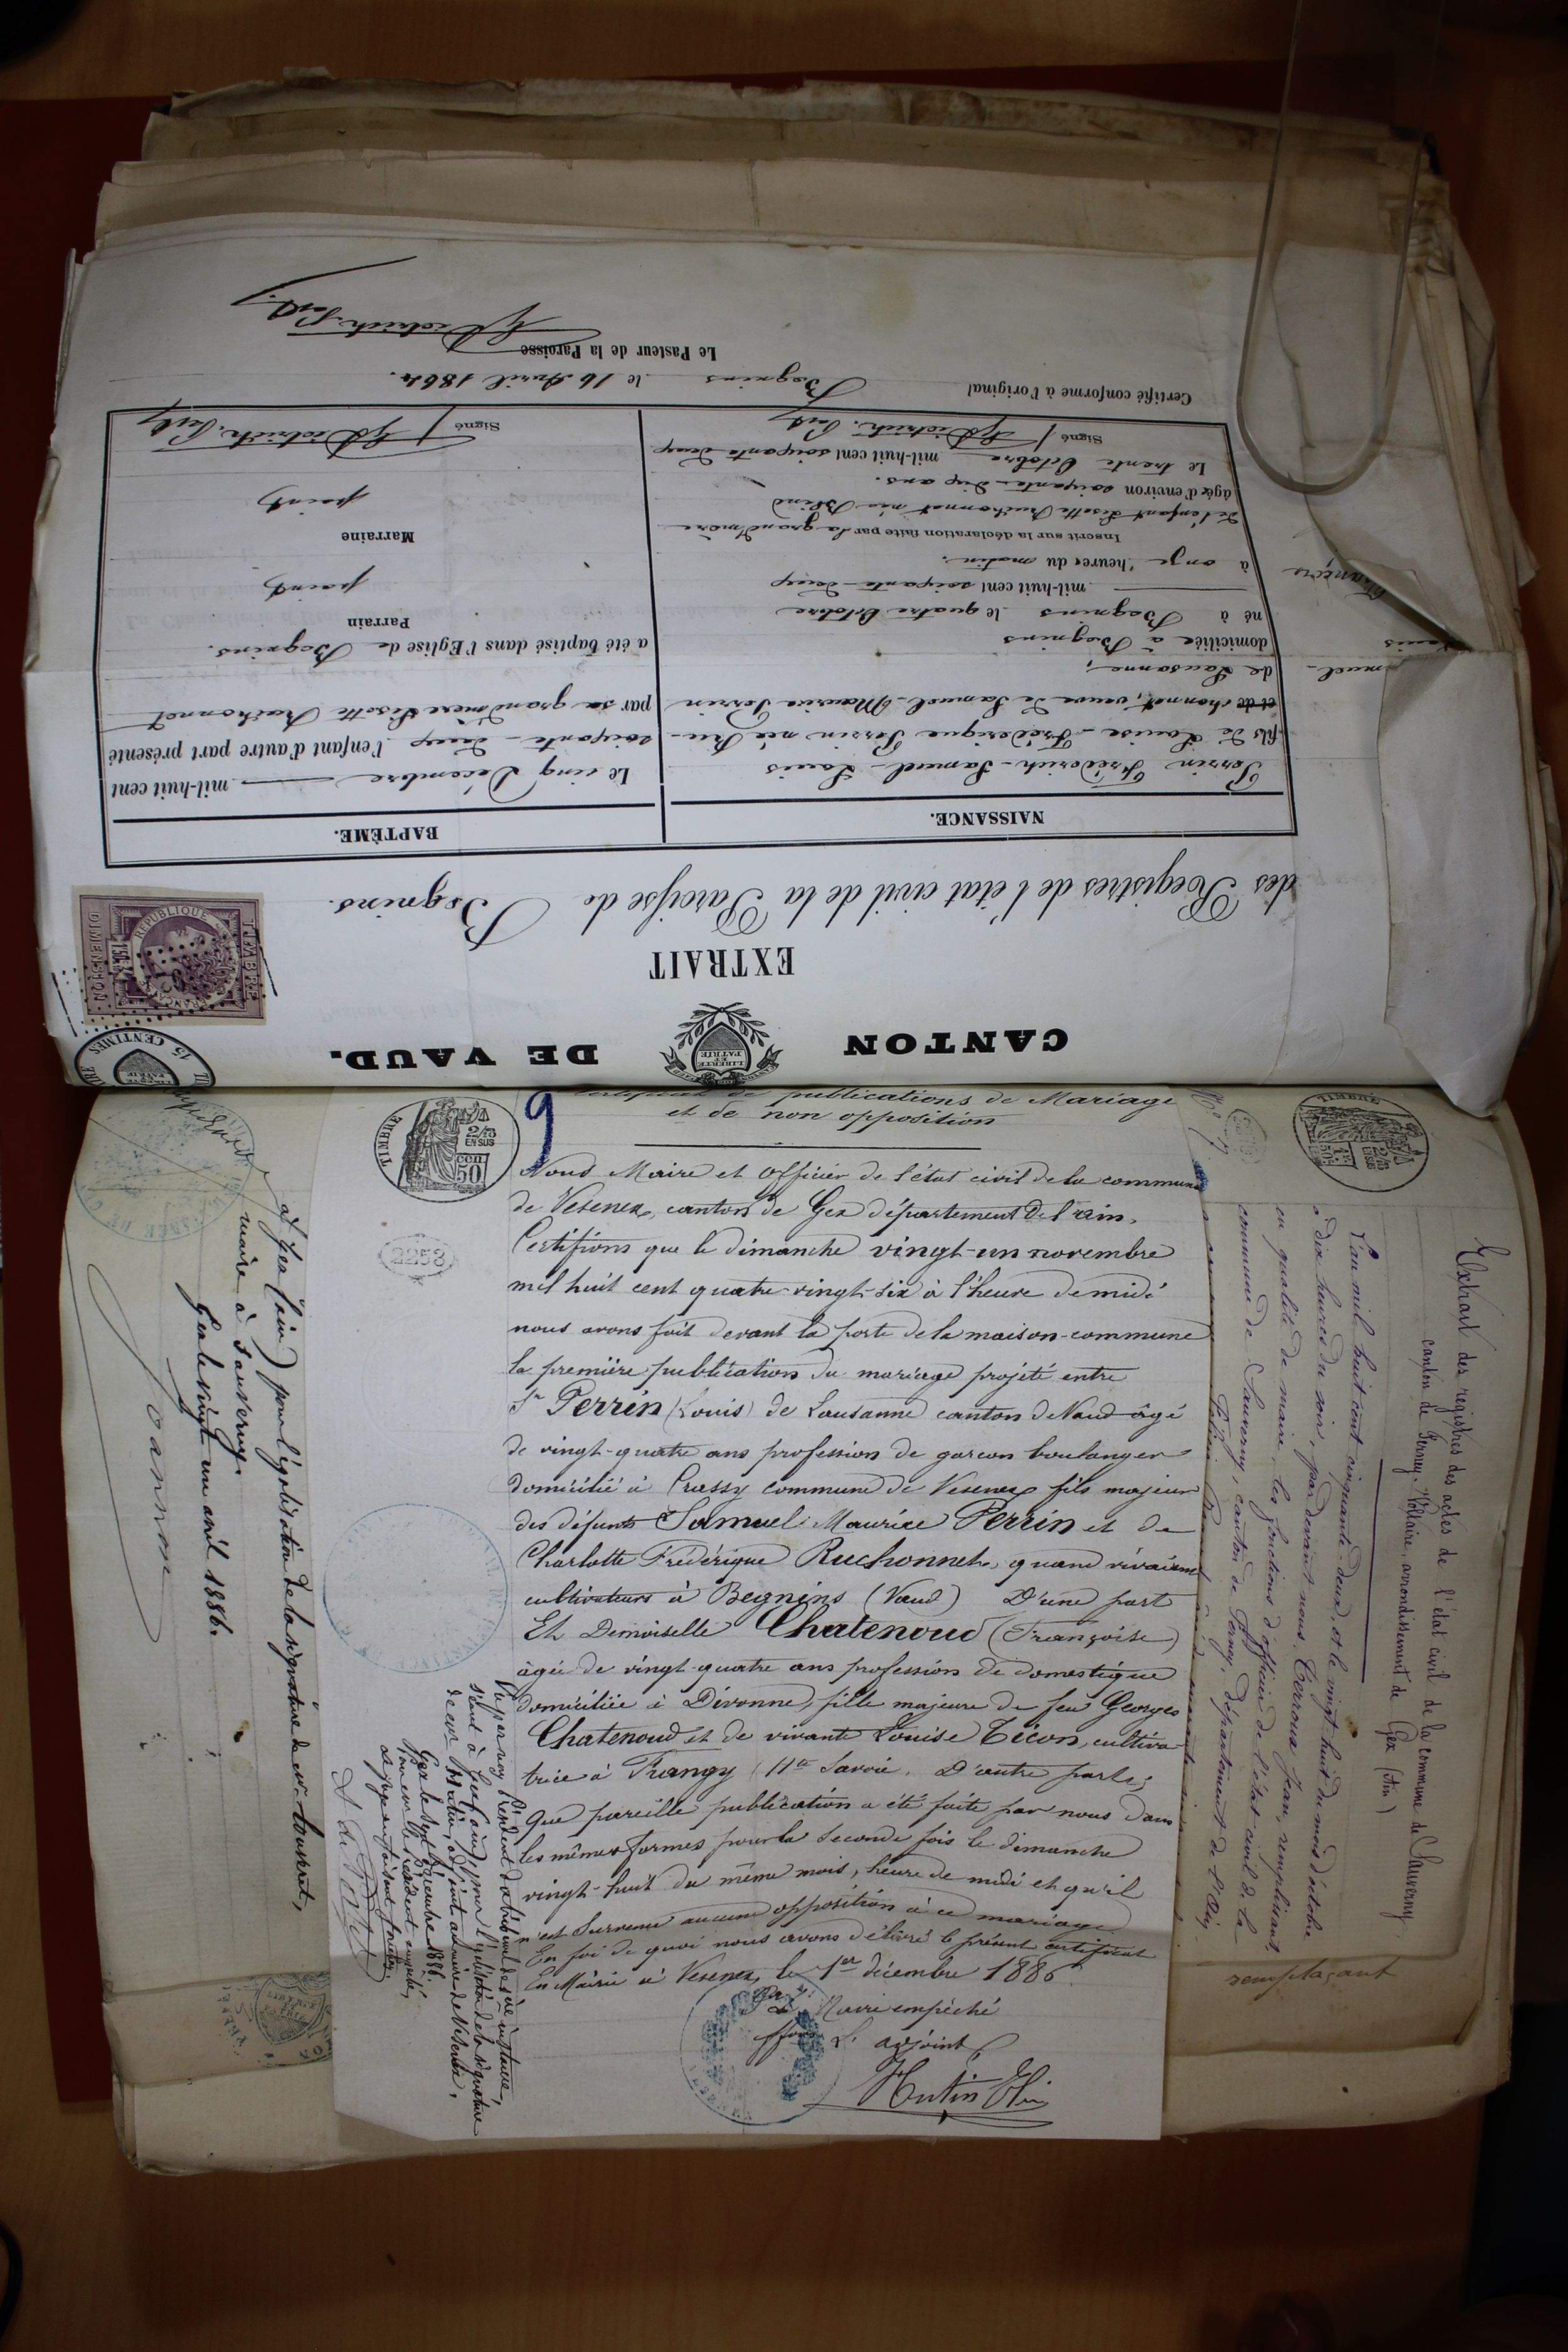 CANTON DE VAUD.
LIBERTÉ ET PATRIE
15 CENTIMES
TIMBRE
REPUBLIQUE FRANÇAISE
DIMENSION
EXTRAIT
des Registres de l'état civil de la Paroisse de Begnins.
NAISSANCE.
Perrin Fréderich-Samuel-Louis
fils de Louise-Fréderique Perrin née Ru-
et de chonnet, veuve de Samuel-Maurice Perrin
de Lausanne;
domiciliée à Begnins
né à Begnins le quatre Octobre
mil-huit cent soixante-deux
à onze heures du matin.
Inscrit sur la déclaration faite par la grand'mère
de l'enfant Lisette Ruchonnet née
âgée d'environ soixante-dix ans.
Le trente Octobre mil-huit cent soixante deux
Signé
BAPTÊME.
Le cinq Décembre mil-huit cent
soixante-deux l'enfant d'autre part présenté
par sa grand'mère Lisette Ruchonnet
a été baptisé dans l'Eglise de Begnins.
Parrain
point
Marraine
point
Signé
Certifié conforme à l'original
Begnins le 16 Avril 1864.
Le Pasteur de la Paroisse
Certificat de publications de Mariage
et de non opposition
TIMBRE
2/10 EN SUS
50
9
2258
Nous Maire et Officier de l'état civil de la commune
de Vesenex, canton de Gex département de l'ain,
Certifions que le dimanche vingt-un novembre
mil huit cent quatre-vingt-six à l'heure de midi
nous avons fait devant la porte de la maison-commune
la première publication du mariage projeté entre
Sr Perrin (Louis) de Lausanne canton de Vaud âgé
de vingt-quatre ans profession de garçon boulanger
domicilié à Crassy commune de Vesenex fils majeur
des défunts Samuel Maurice Perrin et de
Charlotte Frédérique Ruchonnet, quand vivaient
cultivateurs à Begnins (Vaud) D'une part
Et Demoiselle Chatenoud (Françoise)
âgée de vingt-quatre ans profession de domestique
domiciliée à Divonne, fille majeure de feu Georges
Chatenoud et de vivante Louise Técon, cultiva-
trice à Frangy (Hte Savoie. D'autre part;
Que pareille publication a été faite par nous dans
les mêmes formes pour la seconde fois le dimanche
vingt-huit du même mois, heure de midi et qu'il
n'est survenu aucune opposition à ce mariage
En foi de quoi nous avons délivré le présent certificat
En Mairie à Vesenex, le 1er décembre 1886
Maire empêché
L'adjoint
Hutin
Vu par nous Président du tribunal de 1ère instance,
séant à Gex (ain) pour légalisation de la signature
de Mr Hutin, adjoint au maire de Vesenex,
Gex le sept Décembre 1886.
Pour Mr le Président empêché,
à Gex (ain) pour légalisation de la signature de Mr Tousset,
maire à Sauverny.
Gex le vingt un avril 1886.
Extrait des registres des actes de l'état civil de la commune de Sauverny,
canton de Ferney-Voltaire, arrondissement de Gex (Ain)
L'an mil huit cent cinquante-deux, et le vingt huit du mois d'octobre
à dix heures du soir, par devant nous, Terroux Jean, remplissant
en qualité de maire, les fonctions d'officier de l'état civil de la
commune de Sauverny, canton de Ferney, département de l'Ain,
remplaçant